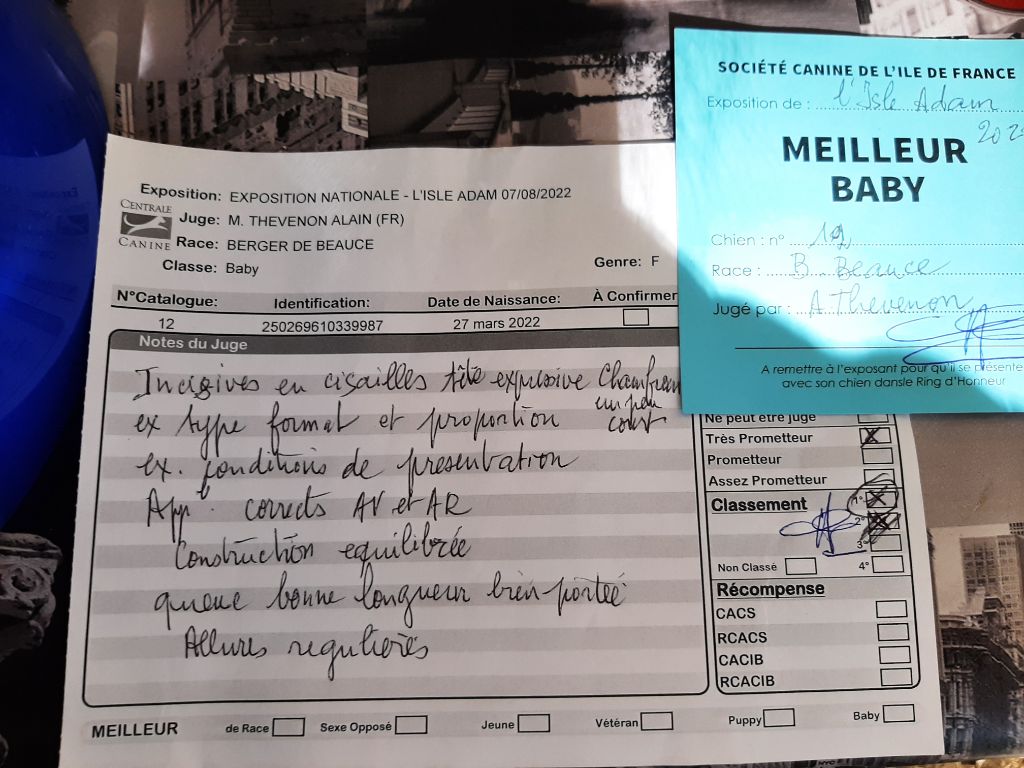 SOCIÉTÉ CANINE DE L'ILE DE FRANCE
Exposition de : l'Isle Adam
MEILLEUR
BABY
Chien : n°
Race : B. Beauce
Jugé par : A Thevenon
A remettre à l'exposant pour qu'il se présente
avec son chien dansle Ring d'Honneur
CENTRALE
CANINE
Exposition: EXPOSITION NATIONALE - L'ISLE ADAM 07/08/2022
Juge: M. THEVENON ALAIN (FR)
Race: BERGER DE BEAUCE
Classe: Baby
Genre: F
N°Catalogue: Identification: Date de Naissance: À Confirmer
12 250269610339987 27 mars 2022
Notes du Juge
Incisives en cisailles tête expressive Chanfrein
un peu
court
ex type format et proportion
ex. conditions de presentation
App't corrects AV et AR
Construction equilibrée
queue bonne longueur bien portée
Allures regulieres
Ne peut être jugé
Très Prometteur X
Prometteur
Assez Prometteur
Classement
1° X
2°
3°
Non Classé 4°
Récompense
CACS
RCACS
CACIB
RCACIB
MEILLEUR de Race Sexe Opposé Jeune Vétéran Puppy Baby